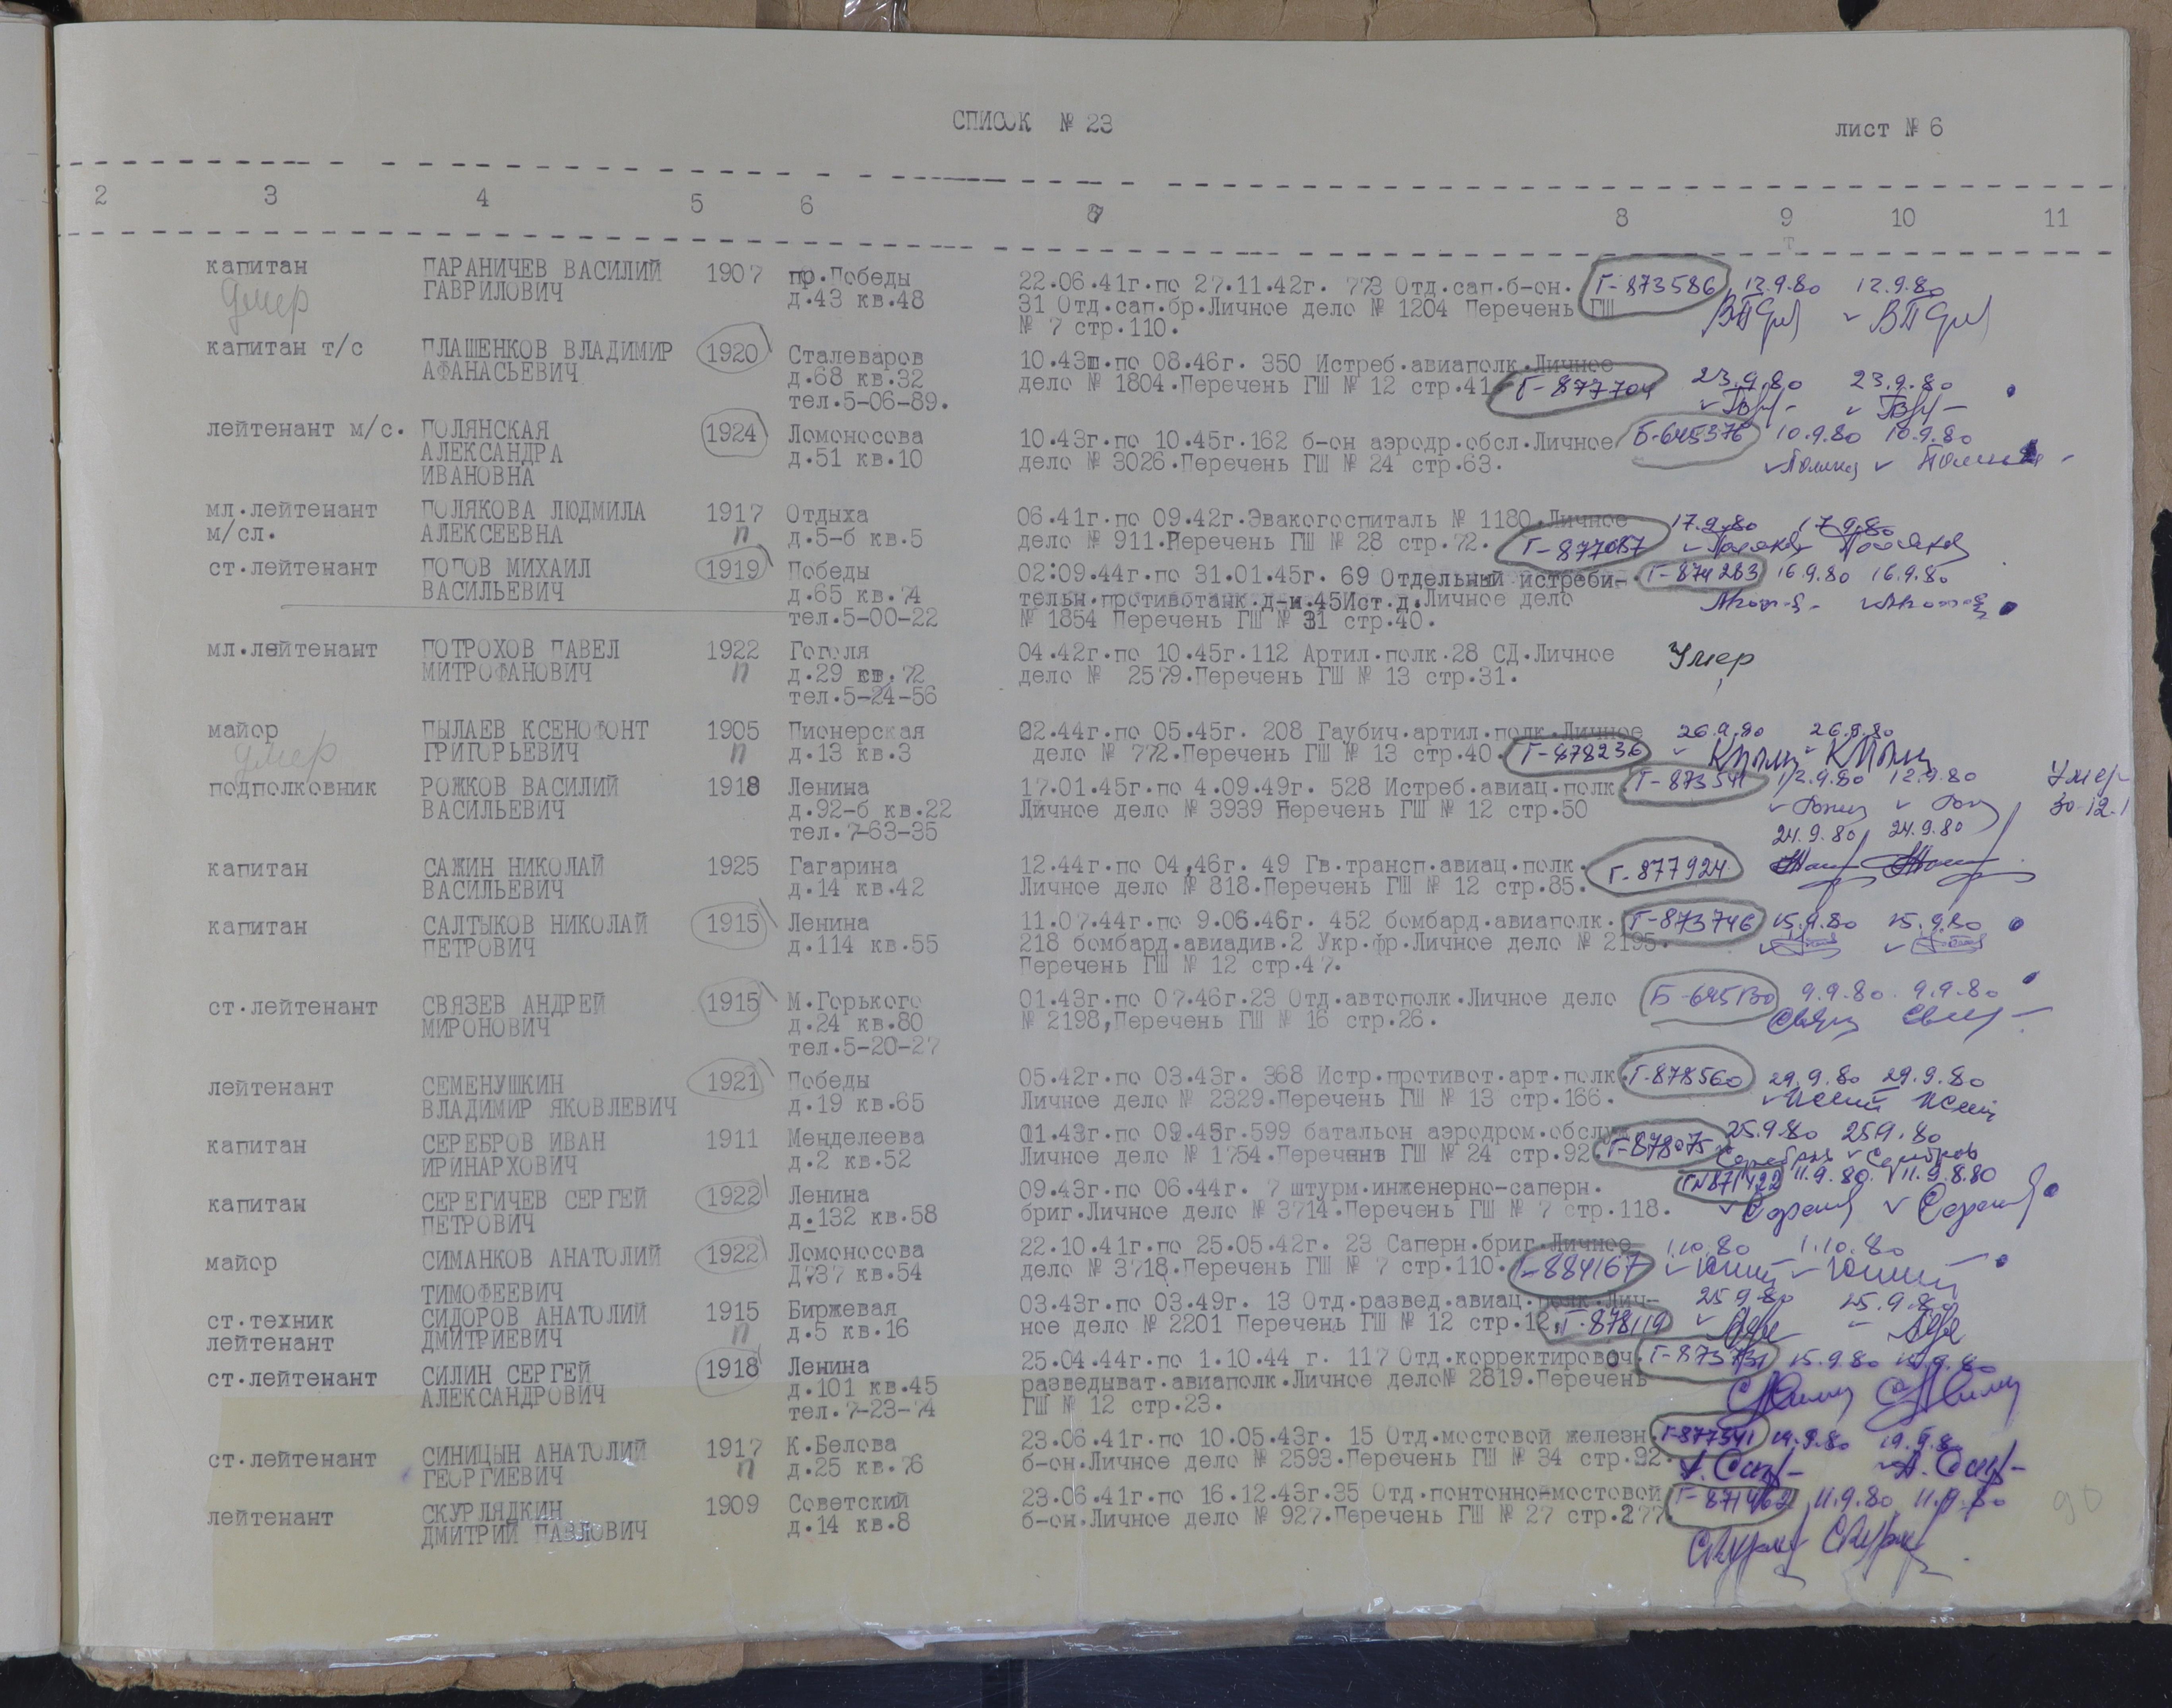 СПИСОК № 23 лист № 6
2 3 4 5 6 7 8 9 10 11
капитан ПАРАНИЧЕВ ВАСИЛИЙ 1907 пр.Победы 22.06.41г.по 27.11.42г. 773 Отд.сап.б-он. Г-873586 12.9.80 12.9.80
умер ГАВРИЛОВИЧ д.43 кв.48 31 Отд.сап.бр.Личное дело № 1204 Перечень ГШ
№ 7 стр.110.
капитан т/с ПЛАШЕНКОВ ВЛАДИМИР 1920 Сталеваров 10.43ш.по 08.46г. 350 Истреб.авиаполк.Личное
АФАНАСЬЕВИЧ д.68 кв.32 дело № 1804.Перечень ГШ № 12 стр.41 Г-877704 23.9.80 23.9.80
тел.5-06-89.
лейтенант м/с. ПОЛЯНСКАЯ 1924 Ломоносова 10.43г.по 10.45г.162 б-он аэродр.обсл.Личное Б-645376 10.9.80 10.9.80
АЛЕКСАНДРА д.51 кв.10 дело № 3026.Перечень ГШ № 24 стр.63.
ИВАНОВНА
мл.лейтенант ПОЛЯКОВА ЛЮДМИЛА 1917 Отдыха 06.41г.по 09.42г.Эвакогоспиталь № 1180.Личное 17.9.80 17.9.80
м/сл. АЛЕКСЕЕВНА п д.5-б кв.5 дело № 911.Перечень ГШ № 28 стр.72. Г-877087
ст.лейтенант ПОПОВ МИХАИЛ 1919 Победы 02:09.44г.по 31.01.45г. 69 Отдельный истреби- Г-874283 16.9.80 16.9.80
ВАСИЛЬЕВИЧ д.65 кв.74 тельн.противотанк.д-н.45Ист.д.Личное дело
тел.5-00-22 № 1854 Перечень ГШ № 31 стр.40.
мл.лейтенант ПОТРОХОВ ПАВЕЛ 1922 Гоголя 04.42г.по 10.45г.112 Артил.полк.28 СД.Личное Умер
МИТРОФАНОВИЧ п д.29 кв.72 дело № 2579.Перечень ГШ № 13 стр.31.
тел.5-24-56
майор ПЫЛАЕВ КСЕНОФОНТ 1905 Пионерская 02.44г.по 05.45г. 208 Гаубич.артил.полк.Личное 26.9.80 26.9.80
умер ГРИГОРЬЕВИЧ п д.13 кв.3 дело № 772.Перечень ГШ № 13 стр.40. Г-878236
подполковник РОЖКОВ ВАСИЛИЙ 1918 Ленина 17.01.45г.по 4.09.49г. 528 Истреб.авиац.полк Г-873541 12.9.80 12.9.80 Умер
ВАСИЛЬЕВИЧ д.92-б кв.22 Личное дело № 3939 Перечень ГШ № 12 стр.50 30.12.
тел.7-63-35 24.9.80 24.9.80
капитан САЖИН НИКОЛАЙ 1925 Гагарина 12.44г.по 04,46г. 49 Гв.трансп.авиац.полк. Г-877924
ВАСИЛЬЕВИЧ д.14 кв.42 Личное дело № 818.Перечень ГШ № 12 стр.85.
капитан САЛТЫКОВ НИКОЛАЙ 1915 Ленина 11.07.44г.по 9.06.46г. 452 бомбард.авиаполк. Г-873746 15.9.80 15.9.80
ПЕТРОВИЧ д.114 кв.55 218 бомбард.авиадив.2 Укр.фр.Личное дело № 2195.
Перечень ГШ № 12 стр.47.
ст.лейтенант СВЯЗЕВ АНДРЕЙ 1915 М.Горького 01.43г.по 07.46г.23 Отд.автополк.Личное дело Б-645130 9.9.80. 9.9.80
МИРОНОВИЧ д.24 кв.80 № 2198,Перечень ГШ № 16 стр.26.
тел.5-20-27
лейтенант СЕМЕНУШКИН 1921 Победы 05.42г.по 03.43г. 368 Истр.противот.арт.полк. Г-878560 29.9.80 29.9.80
ВЛАДИМИР ЯКОВЛЕВИЧ д.19 кв.65 Личное дело № 2329.Перечень ГШ № 13 стр.166.
капитан СЕРЕБРОВ ИВАН 1911 Менделеева 01.43г.по 09.45г.599 батальон аэродром.обслуж 25.9.80 25.9.80
ИРИНАРХОВИЧ д.2 кв.52 Личное дело № 1754.Перечень ГШ № 24 стр.92. Г-878075 Серебров Серебров
капитан СЕРЕГИЧЕВ СЕРГЕЙ 1922 Ленина 09.43г.по 06.44г. 7 штурм.инженерно-саперн. Г-871422 11.9.80. 11.9.8.80
ПЕТРОВИЧ д.132 кв.58 бриг.Личное дело № 3714.Перечень ГШ № 7 стр.118.
майор СИМАНКОВ АНАТОЛИЙ 1922 Ломоносова 22.10.41г.по 25.05.42г. 23 Саперн.бриг.Личное 1.10.80 1.10.80
Д.37 кв.54 дело № 3718.Перечень ГШ № 7 стр.110. Г-884167
ТИМОФЕЕВИЧ
ст.техник СИДОРОВ АНАТОЛИЙ 1915 Биржевая 03.43г.по 03.49г. 13 Отд.развед.авиац.полк.Лич- 25.9.80 25.9.80
лейтенант ДМИТРИЕВИЧ п д.5 кв.16 ное дело № 2201 Перечень ГШ № 12 стр.12. Г-878119
ст.лейтенант СИЛИН СЕРГЕЙ 1918 Ленина 25.04.44г.по 1.10.44 г. 117 Отд.корректировоч. Г-873731 15.9.80 15.9.80
АЛЕКСАНДРОВИЧ д.101 кв.45 разведыват.авиаполк.Личное дело№ 2819.Перечень
тел.7-23-74 ГШ № 12 стр.23.
ст.лейтенант СИНИЦЫН АНАТОЛИЙ 1917 К.Белова 23.06.41г.по 10.05.43г. 15 Отд.мостовой железн. Г-877541 19.9.80 19.9.80
ГЕОРГИЕВИЧ п д.25 кв.76 б-он.Личное дело № 2593.Перечень ГШ № 34 стр.92.
лейтенант СКУРЛЯДКИН 1909 Советский 23.06.41г.по 16.12.43г.35 Отд.понтонно-мостовой Г-871462 11.9.80 11.9.80
ДМИТРИЙ ПАВЛОВИЧ д.14 кв.8 б-он.Личное дело № 927.Перечень ГШ № 27 стр.277.